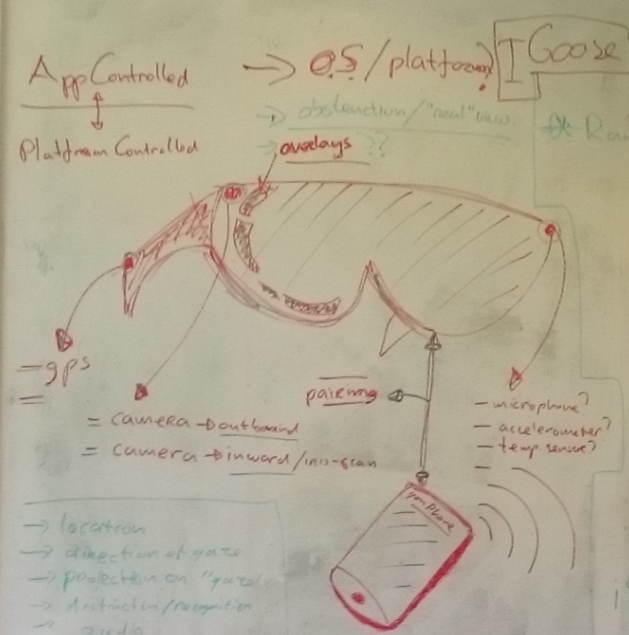 App Controlled
Platform Controlled
→ OS/platform?
I Goose
→ obstruction/"real" view
→ overlays ??
= gps
=
= camera → outbound
= camera → inward/iris-scan
pairing
- microphone?
- accelerometer?
- temp. sensor?
-
iPhone
→ location
→ direction of gaze
→ projection on "gaze"
→ distinction/recognition
→ audio